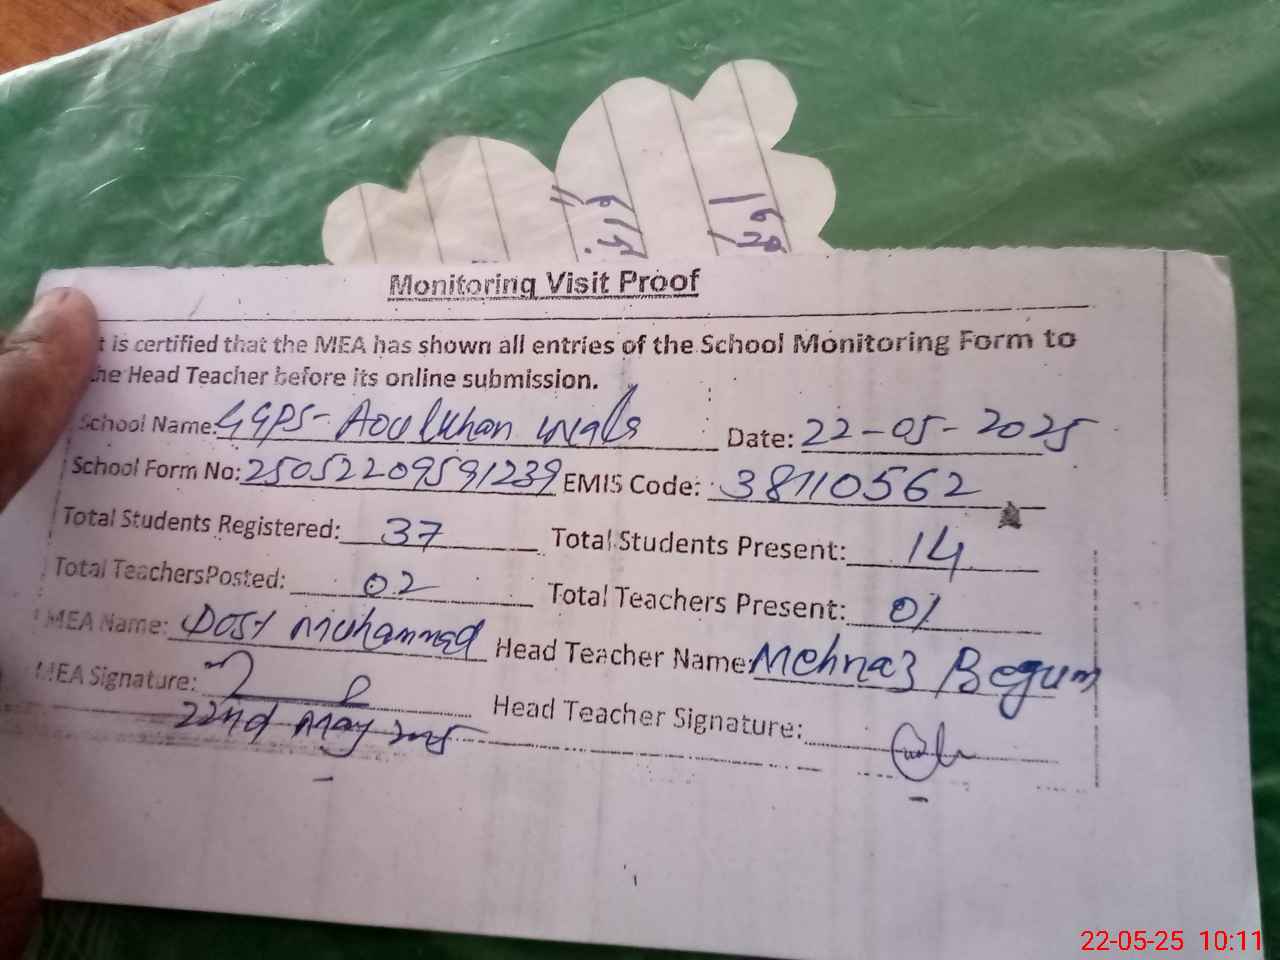 Monitoring Visit Proof
t is certified that the MEA has shown all entries of the School Monitoring Form to
he Head Teacher before its online submission.
School Name: GGPS- Date: 22-05-2025
School Form No: 25052209591239 EMIS Code: 38110562
Total Students Registered: 37 Total Students Present: 14
Total TeachersPosted: 02 Total Teachers Present: 01
MEA Name: Dost Muhammad Head Teacher Name: Mehnaz Begum
MEA Signature: Head Teacher Signature:
22nd May 2025
22-05-25 10:11